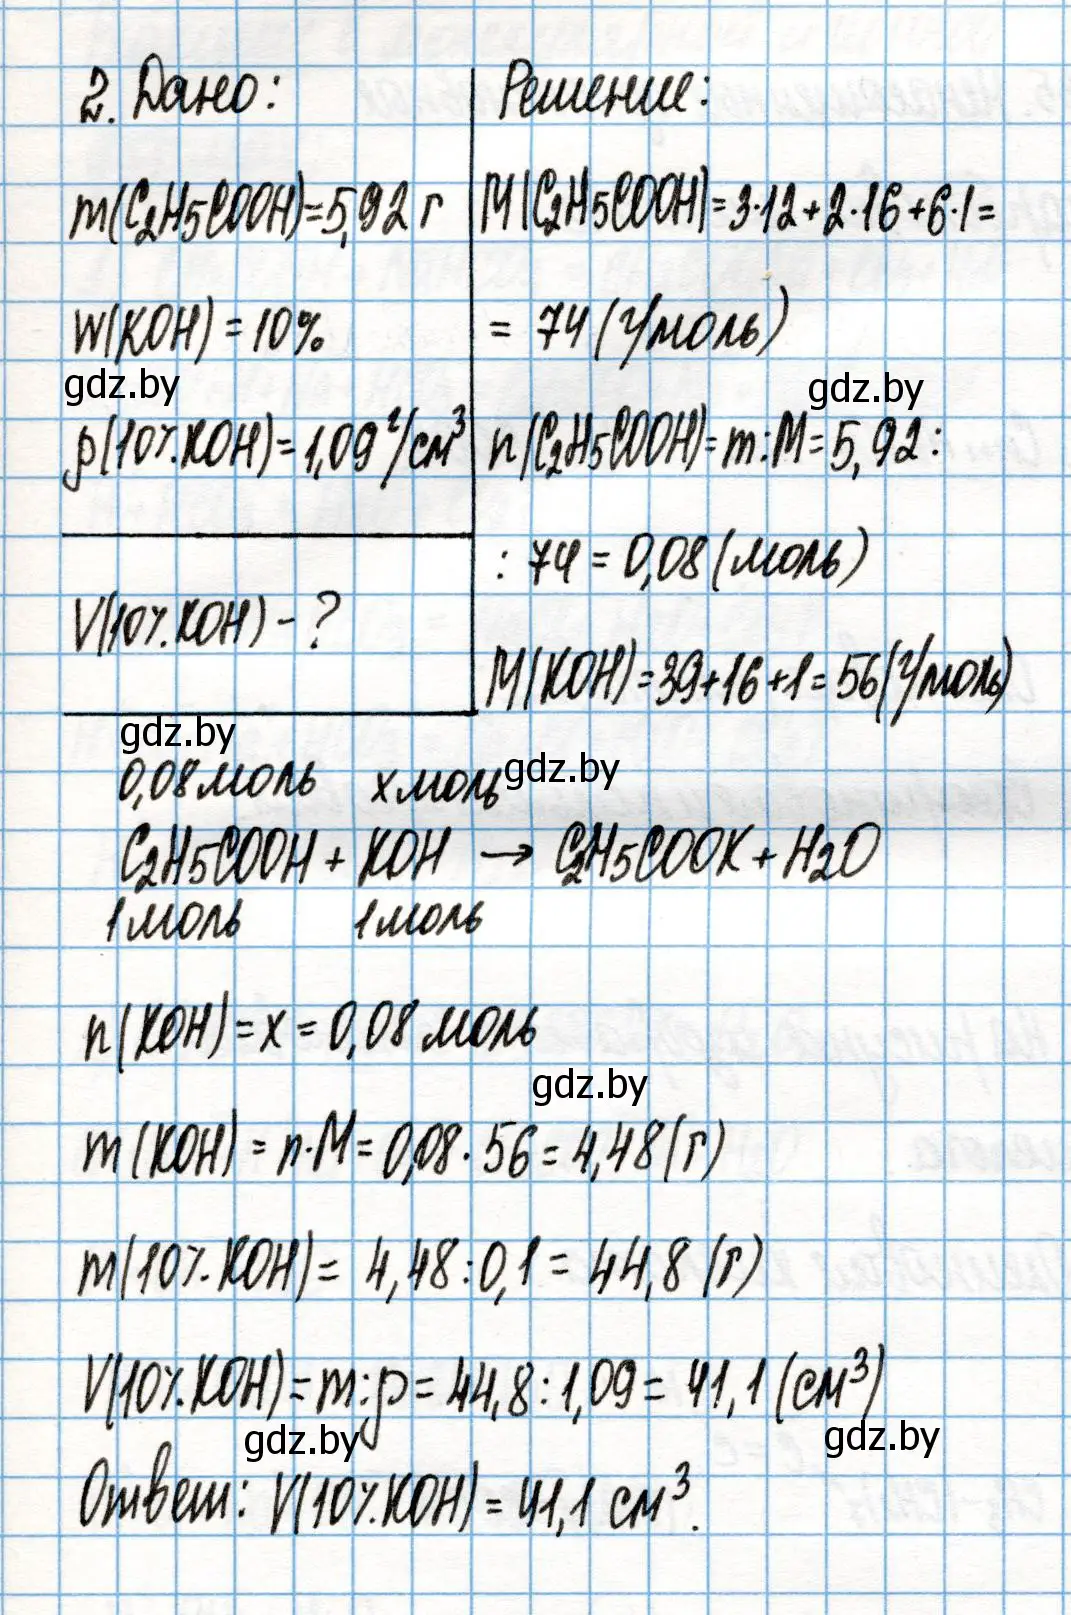 2. Дано:
m(C2H5COOH)=5,92 г
W(KOH) = 10%
gdz.by
ρ(10%.KOH)=1,09 г/см³
V(10%.KOH) - ?
Решение:
M(C2H5COOH)=3·12+2·16+6·1=
= 74 (г/моль)
gdz.by
n(C2H5COOH)=m:M=5,92:
: 74 = 0,08 (моль)
M(KOH)=39+16+1=56(г/моль)
gdz.by
gdz.by
0,08 моль x моль
C2H5COOH + KOH → C2H5COOK + H2O
1 моль 1 моль
n(KOH) = x = 0,08 моль
gdz.by
m(KOH) = n·M = 0,08·56 = 4,48 (г)
m(10%.KOH) = 4,48:0,1 = 44,8 (г)
V(10%.KOH) = m:ρ = 44,8:1,09 = 41,1 (см³)
gdz.by gdz.by
Ответ: V(10%.KOH) = 41,1 см³.